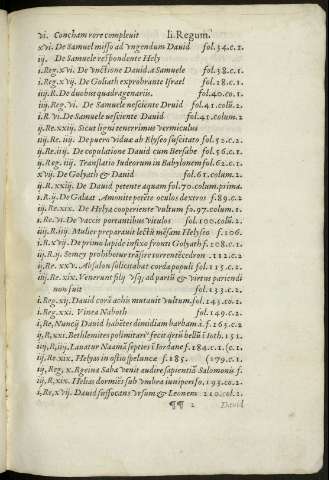 vi. Concham rore compleuit    Ii.Regum.
xvi. De Samuel misso ad vngendum Dauid    fol.34.c.2.
iij. De Samuele respondente Hely
i.Reg.xvi. De vnctione Dauid.a Samuele    fol.38.c.1.
i.Reg.xvij. De Goliath exprobrante Israel    fol.28.c.1.
iiij.R. De duobus quadragenariis.    fol.40.co.1.
i.Reg.vi. De Samuele nesciente Druid    fol.41.colū.2.
i.R.vi. De Samuele nesciente Dauid    fol.41.colum.2
ij.Re.xxiij. Sicut ligni tenerrimus vermiculus
iiij.Re.iiij. De puero viduæ ab Elyseo suscitato    fol.52.c.2.
iij.Re.iiij. De copulatione Dauid cum Bersabe    fol.56.c.1.
iiij.Reg.iiij. Translatio Iudeorum in Babylonem    fol.62.c.1.
xvij. De Golyath & Dauid    fol.61.colum.2.
ij.R.xxiij. De Dauid petente aquam    fol.70.colum.prima.
i.R.ij. De Galaat Amonite petēte oculos dextros    f.89.c.2
iij.Re.xix. De Helya cooperiente vultum    fo.97.colum.1.
i.Re.vi. De vaccis portantibus vitulos    fol.100.colū.2.
iiij.R.iiij. Mulier præparauit lectū mēsam Helyseo    f.106.
i.R.xvij. De primo lapide infixo fronti Golyath    f.108.c.1.
iij.R.ij. Semey prohibetur trāsire torrentēcedron    .112.c.2
ij.Re.xxv. Absalon solicitabat corda populi    f.115.c.2.
iij.Re.xix. Venerunt filij vsq; ad partū & virtus pariendi
non fuit    fol.133.c.2.
i.Reg.xij. Dauid corā achis mutauit vultum.    fol.143.co.2.
i.Reg.xxi. Vinea Naboth    fol.149.c.2.
i,Re,Nuncij Dauid habētes dimidiam barbam.    i.f.265.c.2
i,R,xxi.Bethlemites polimitari⁹ fecit qerū bellū    i Ioth.151.
iij,R,iij,Lauatur Naamā septies i Iordane    f.184.c.1.(c.1.
iij.Re.xix. Helyas in ostio speluncæ    f.185.    (179.c.1.
iij,Reg,x.Regina Saba venit audire sapientiā Salomonis    f.
iij,R.xix. Helias dormiēs sub vmbra iuniperi    fo,193.co.2.
i,Re,xvij. Dauid suffocans vrsum & Leonem    210.col.2.
¶¶ 2    Dauid